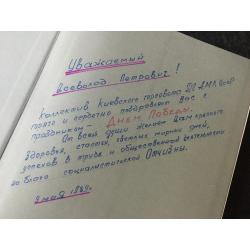 Уважаемый
Всеволод Петрович!
Коллектив Киевского горсовета
тепло и сердечно поздравляет Вас с
праздником – Днем Победы.
От всей души желаем Вам крепкого
здоровья, счастья, светлых мирных дней,
успехов в труде и общественной деятельности
на благо социалистической Отчизны.
9 мая 1984г.